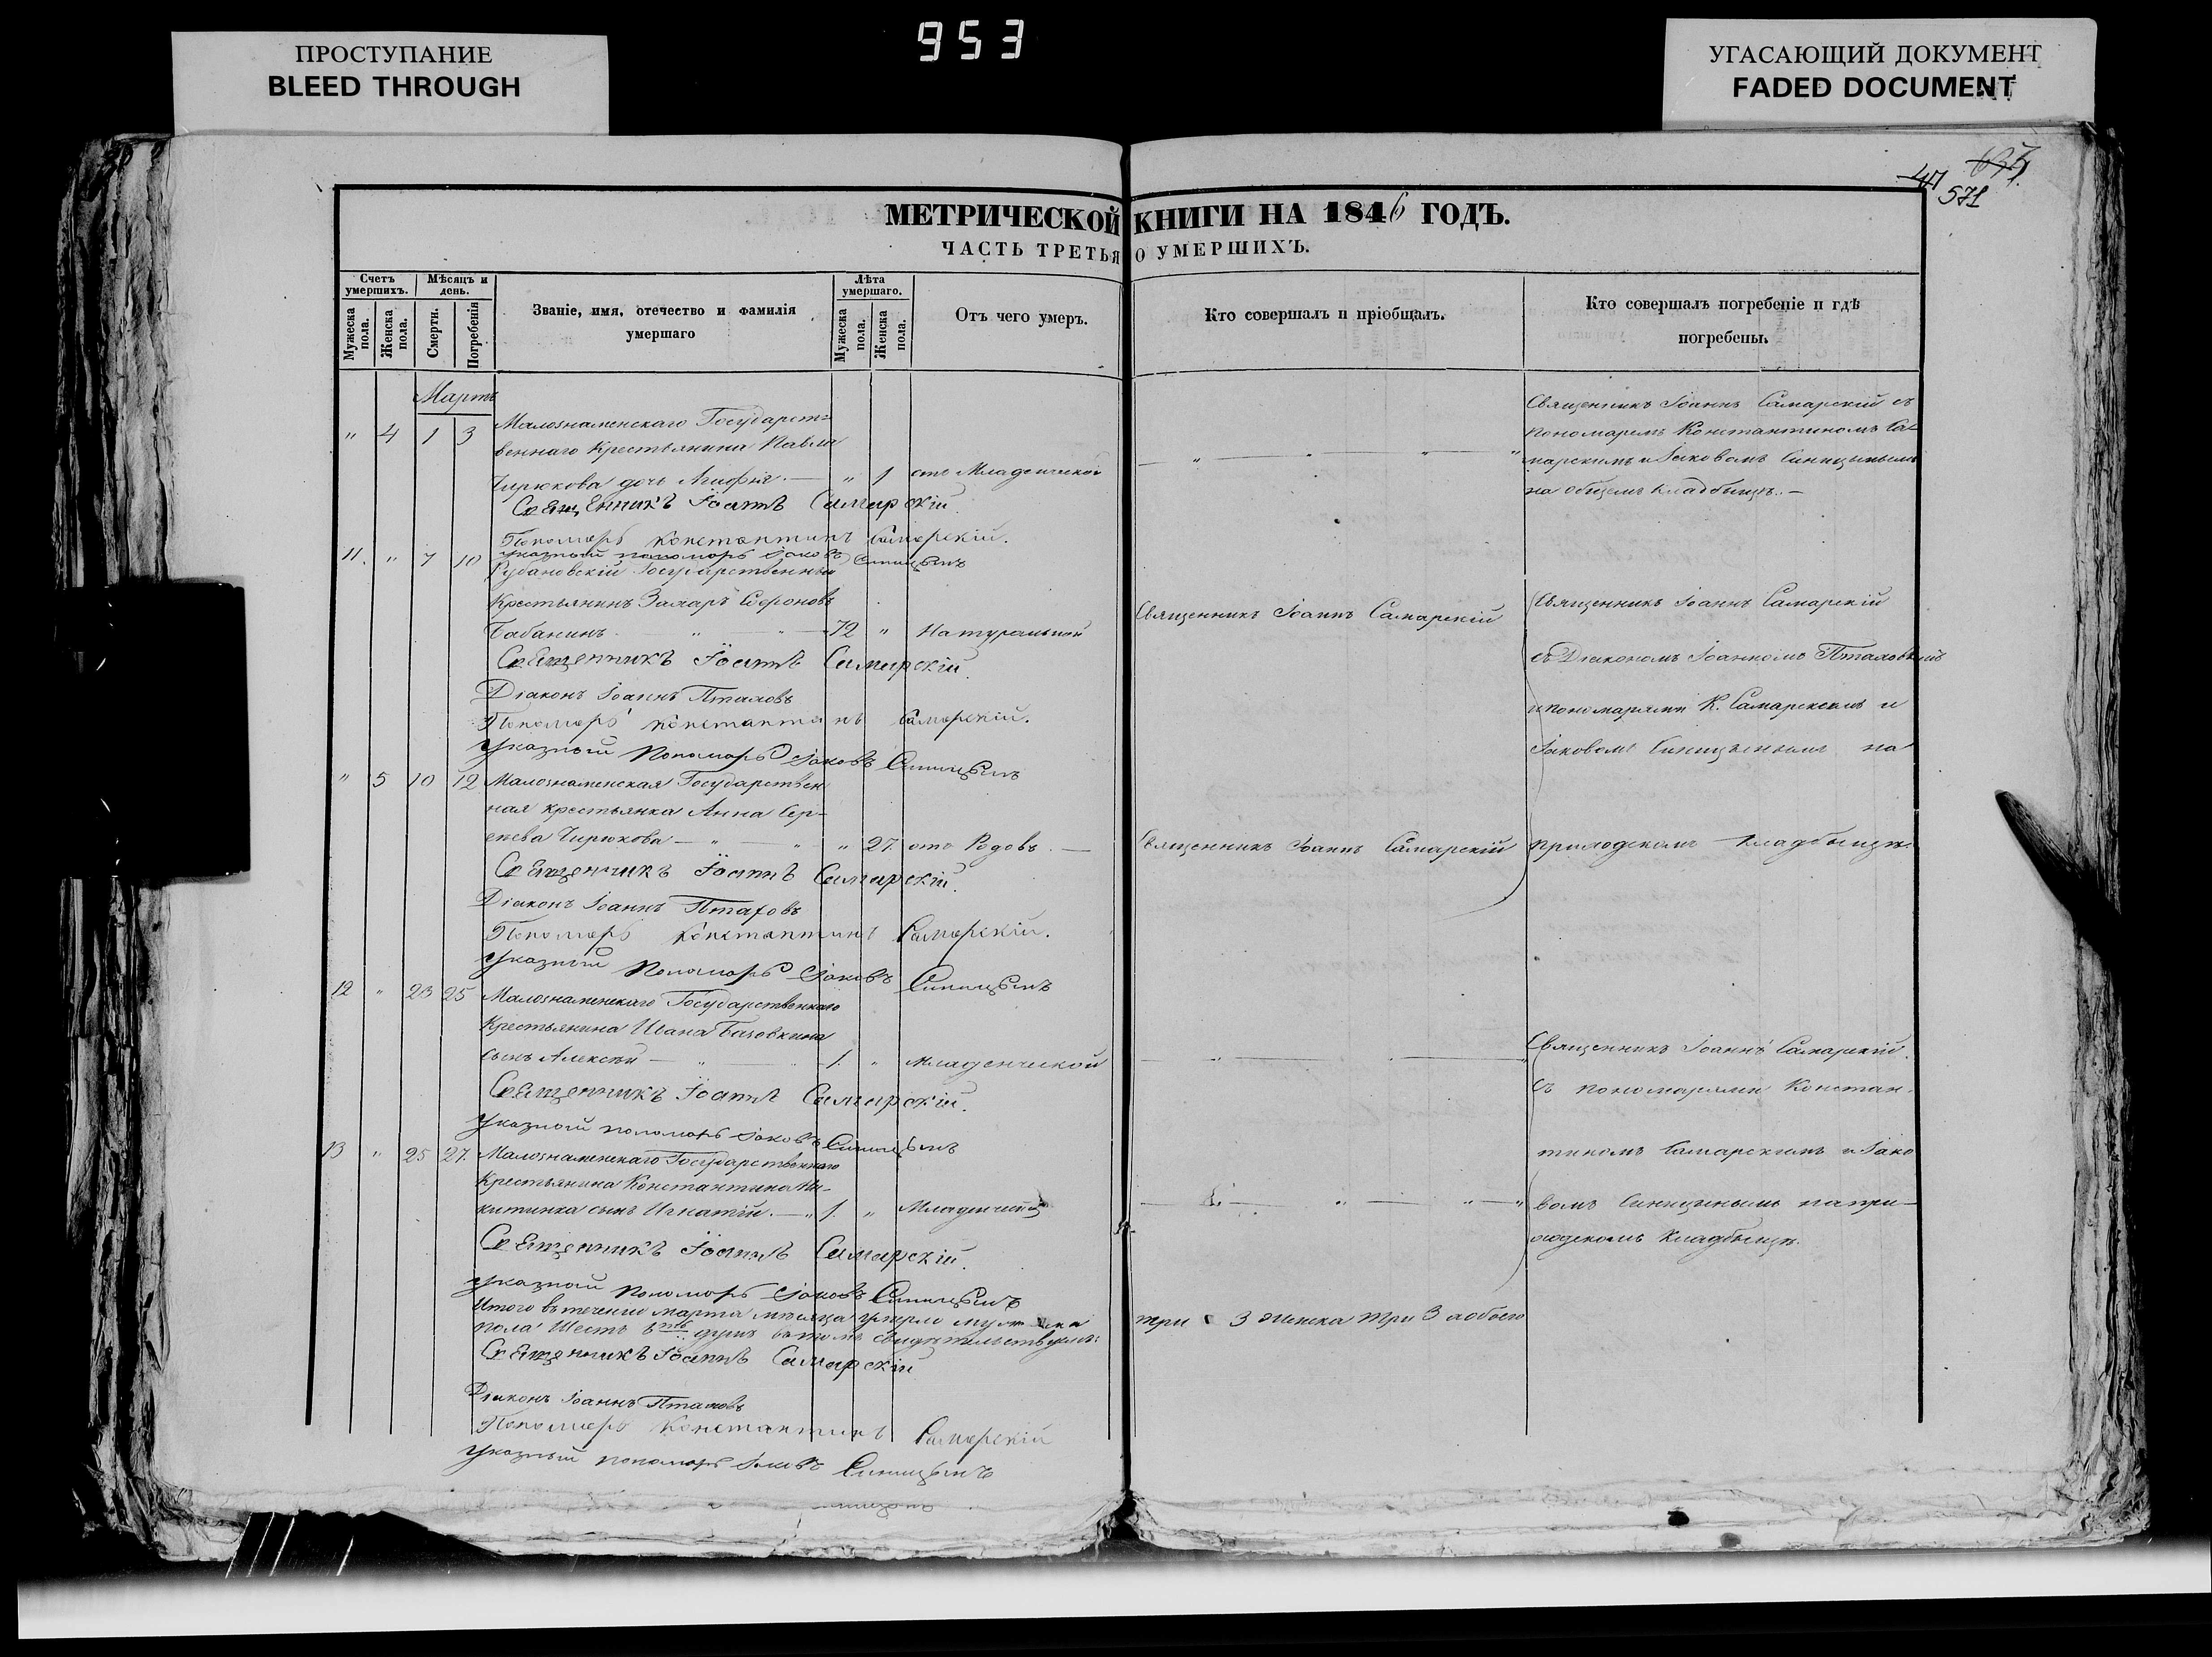 ПРОСТУПАНИЕ
BLEED THROUGH
953
УГАСАЮЩИЙ ДОКУМЕНТ
FADED DOCUMENT
571
МЕТРИЧЕСКОЙ КНИГИ НА 1846 ГОДЪ.
ЧАСТЬ ТРЕТЬЯ О УМЕРШИХЪ.
Счетъ умершихъ.
Мѣсяцъ и день.
Званіе, имя, отечество и фамилія умершаго
Лѣта умершаго.
Отъ чего умеръ.
Кто совершалъ и пріобщалъ.
Кто совершалъ погребеніе и гдѣ погребены.
Мужеска пола.
Женска пола.
Смерти.
Погребенія
Мужеска пола.
Женска пола.
Мартъ
" 4 1 3 Малознаменскаго Государст=
веннаго Крестьянина Павла
Чирюкова дочь — " 1 отъ Младенческой
Священникъ Іоаннъ Самарскій.
Пономарь Константинъ Самарскій.
Указный пономарь Іаковъ Синицынъ
Священникъ Іоаннъ Самарскій съ
пономаремъ Константиномъ Са-
марскимъ и Іаковомъ Синицынымъ
на общемъ кладбищѣ. —
11. " 7 10 Рубановскій Государственный
Крестьянинъ Захаръ Софроновъ
Бабанинъ 72 " Натуральной
Священникъ Іоаннъ Самарскій
Священникъ Іоаннъ Самарскій.
Діаконъ Іоаннъ Птаховъ
Пономарь Константинъ Самарскій.
Указный Пономарь Іаковъ Синицынъ
Священникъ Іоаннъ Самарскій
съ Діакономъ Іоанномъ Птаховымъ
и пономарями К. Самарскимъ и
Іаковомъ Синицынымъ на
приходскомъ кладбищѣ
" 5 10 12 Малознаменская Государствен
ная крестьянка Анна Сер-
геева Чирюкова — " " 27. отъ Родовъ. —
Священникъ Іоаннъ Самарскій
Священникъ Іоаннъ Самарскій.
Діаконъ Іоаннъ Птаховъ
Пономарь Константинъ Самарскій.
Указный Пономарь Іаковъ Синицынъ
12 " 23 25 Малознаменскаго Государственнаго
Крестьянина Ивана
сынъ Алексѣй — 1. " младенческой
Священникъ Іоаннъ Самарскій.
Указный пономарь Іаковъ Синицынъ
Священникъ Іоаннъ Самарскій
съ пономарями Констан-
тиномъ Самарскимъ и Іако
вомъ Синицынымъ на при-
ходскомъ кладбищѣ.
13 " 25 27. Малознаменскаго Государственнаго
Крестьянина Константина Ни-
китинка сынъ Игнатій. — " 1. " Младенческой
Священникъ Іоаннъ Самарскій.
Указный пономарь Іаковъ Синицынъ
Итого въ теченіи марта мѣсяца умерло мужеска три 3 женска три 3 а обоего
пола шесть 6ть душъ въ томъ свидѣтельствуемъ:
Священникъ Іоаннъ Самарскій
Діаконъ Іоаннъ Птаховъ
Пономарь Константинъ Самарскій
Указный пономарь Іаковъ Синицынъ